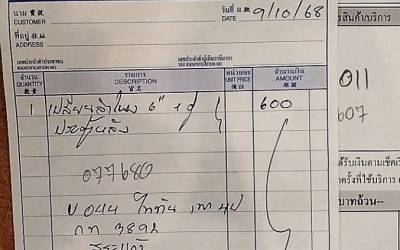 นาม 寶號
CUSTOMER
วันที่ 日期
DATE 9/10/68
ที่อยู่ 住址
ADDRESS
เลขประจำตัวประชาชน
IDENTIFICATION NO.
เลขประจำตัวผู้เสียภาษีอากร
TAX IDENTIFICATION NO.
จำนวน
QUANTITY
數量
รายการ
DESCRIPTION
貨名
หน่วยละ
UNIT PRICE
價銀
จำนวนเงิน
AMOUNT
銀額
1 เปลี่ยนลำโพง 6" 1 คู่ 600
ประตูหลัง
077680
3892
สระแก้ว
สินค้า/บริการ
011
607
ได้รับเงินตามเช็คเรี
ครั้งที่ใช้บริการ
บาทถ้วน--